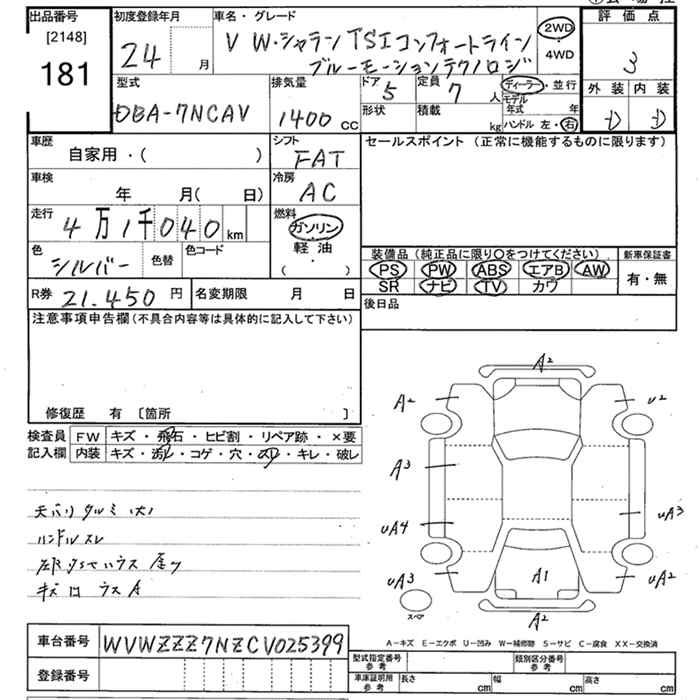 出品番号
[2148]
181
初度登録年月
24 月
車名・グレード
VW・シャラン TSIコンフォートライン
ブルーモーションテクノロジ
2WD
4WD
評価点
3
外装 内装
D D
型式
DBA-7NCAV
排気量
1400 cc
ドア
5
形状
定員
7 人
積載
kg
ディーラー・並行
モデル
年式 年
ハンドル 左・右
車歴
自家用・( )
シフト
FAT
車検
年 月( 日)
冷房
AC
走行
4万1千040km
燃料
ガソリン
軽油
( ・ )
色
シルバー
色替
色コード
R券 21.450 円
名変期限 月 日
セールスポイント (正常に機能するものに限ります)
装備品(純正品に限り〇をつけてください)
PS PW ABS エアB AW
SR ナビ TV カワ
新車保証書
有・無
後日品
注意事項申告欄(不具合内容等は具体的に記入して下さい)
修復歴 有 [箇所 ]
検査員
記入欄
FW キズ・飛石・ヒビ割・リペア跡・×要
内装 キズ・汚れ・コゲ・穴・スリ・キレ・破レ
天バリタルミ(大)
ハンドルスレ
A2
A2
U2
A3
UA3
UA4
UA3
A1
UA2
A2
スペア
A－キズ E－エクボ U－凹み W－補修跡 S－サビ C－腐食 XX－交換済
車台番号 WVWZZZ7NZCV025399
登録番号
型式指定番号
参考
類別区分番号
参考
車庫証明用
参考
長さ cm
幅 cm
高さ cm